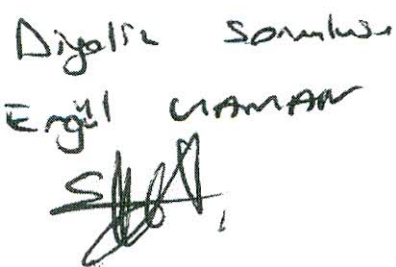 Diyaliz Sorumlusu
Ergül YAMAN